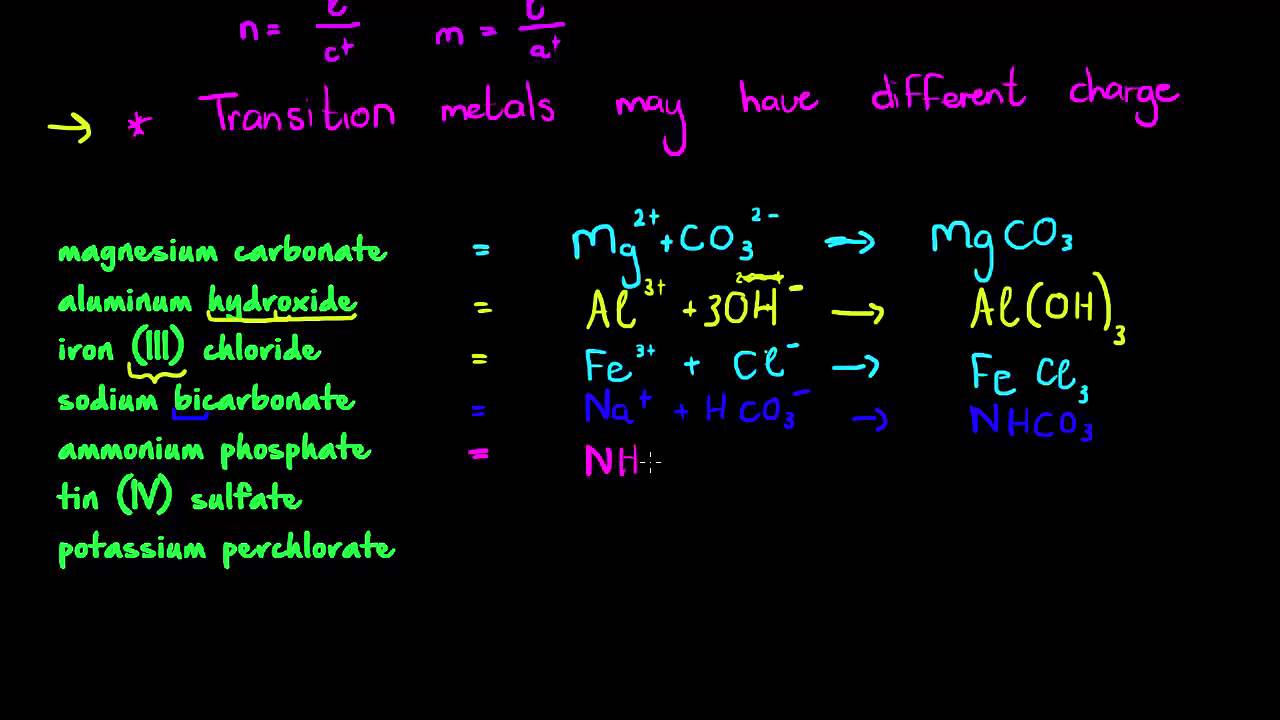 n = ℓ/c⁺ m = ℓ/a⁺
→ * Transition metals may have different charge
magnesium carbonate = Mg²⁺ + CO₃²⁻ → MgCO₃
aluminum hydroxide = Al³⁺ + 3OH⁻ → Al(OH)₃
iron (III) chloride = Fe³⁺ + Cl⁻ → FeCl₃
sodium bicarbonate = Na⁺ + HCO₃⁻ → NHCO₃
ammonium phosphate = NH
tin (IV) sulfate
potassium perchlorate